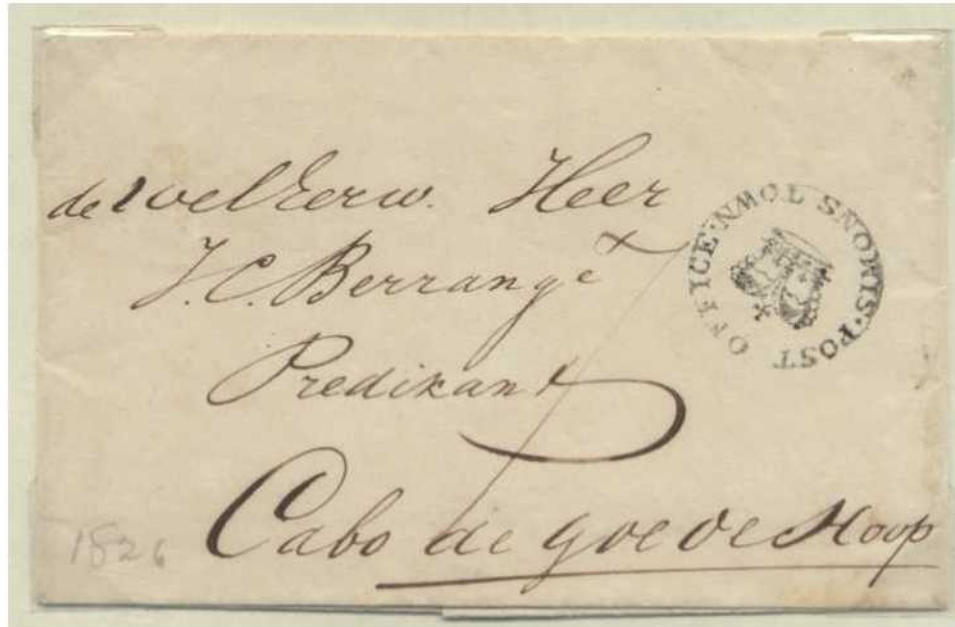 de Weleerw. Heer
J. C. Berrangé
Predikant
Cabo de goede Hoop
SIMONS TOWN POST OFFICE
1826